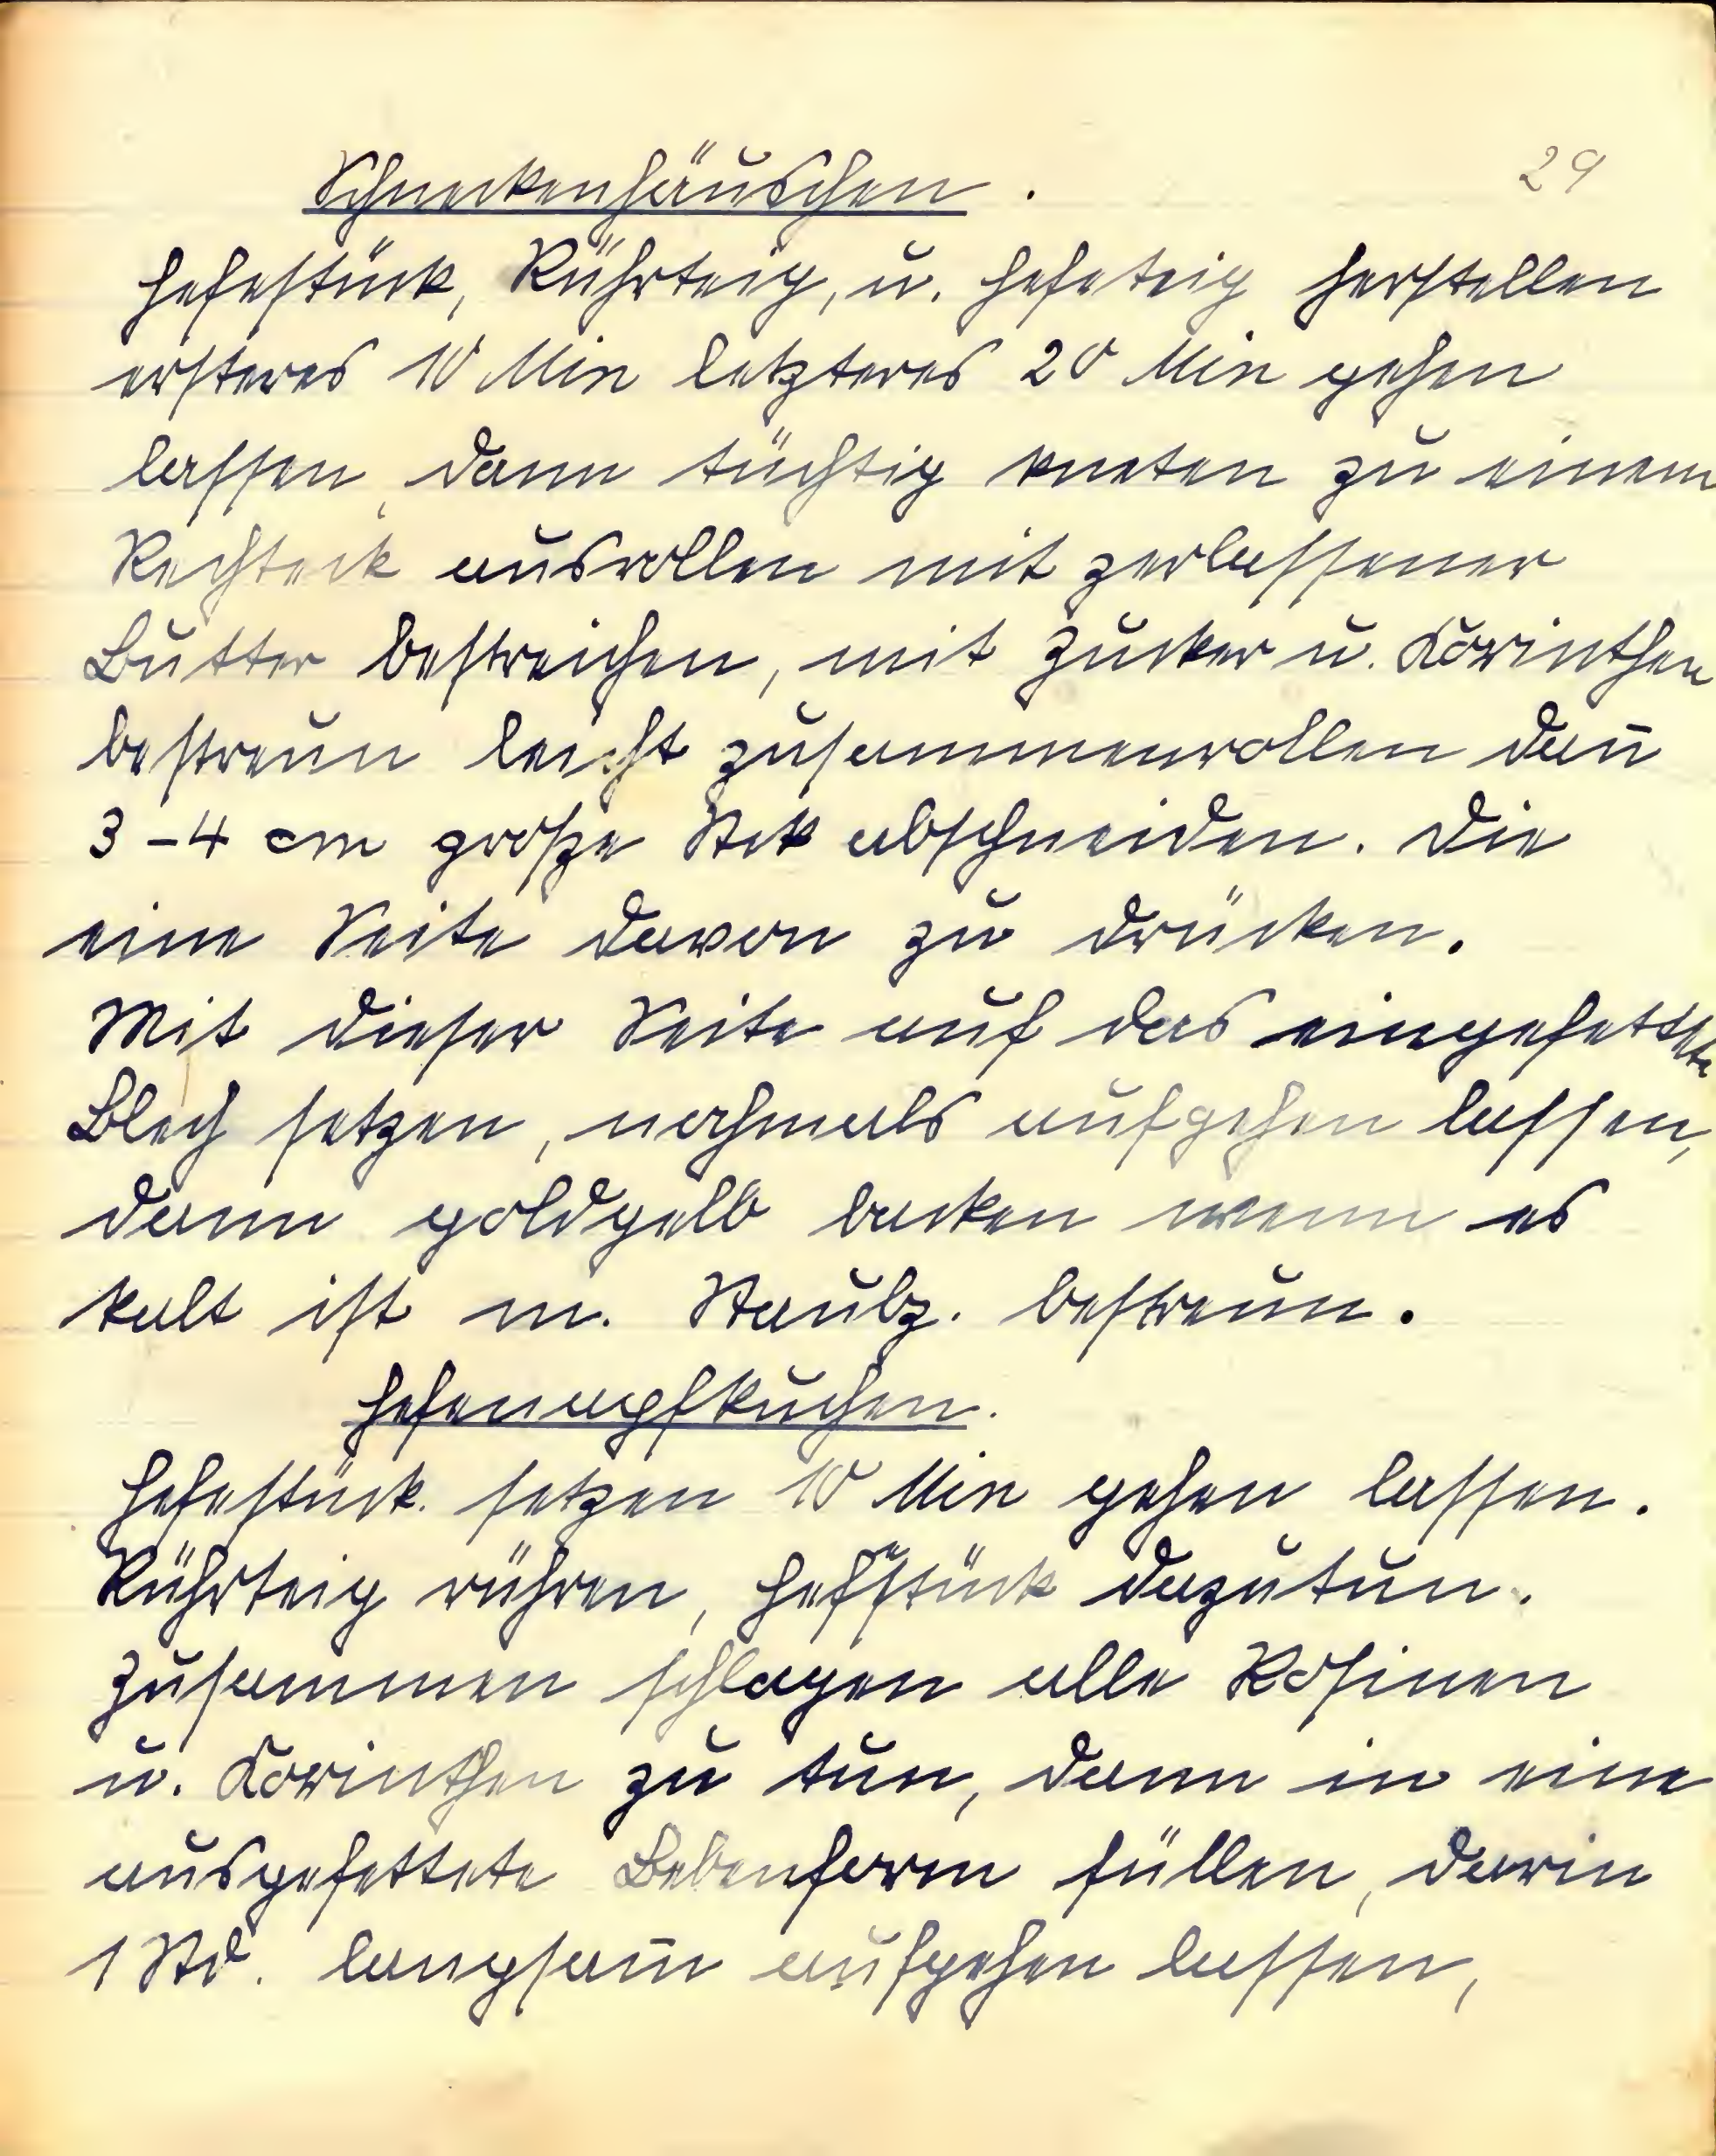 Schneckenhäuschen.
29
Hefestück, Rührteig, u. Hefeteig herstellen
ersteres 10 Min letzteres 20 Min gehen
lassen, dann tüchtig kneten zu einem
Rechteck ausrollen mit zerlassener
Butter bestreichen, mit Zucker u. Korinthen
bestreun leicht zusammenrollen dan̄
3-4 cm große Stck abschneiden. Die
eine Seite davon zu drücken.
Mit dieser Seite auf das eingefettete
Blech setzen, nochmals aufgehen lassen,
dann goldgelb backen wenn es
kalt ist m. Staubz. bestreun.
Hefenapfkuchen.
Hefestück setzen 10 Min gehen lassen.
Rührteig rühren, Hefstück dazutun.
Zusammen schlagen alle Rosinen
u. Korinthen zu tun, dann in eine
ausgefettete Bebenform füllen, darin
1 Std. langsam̄ aufgehen lassen,